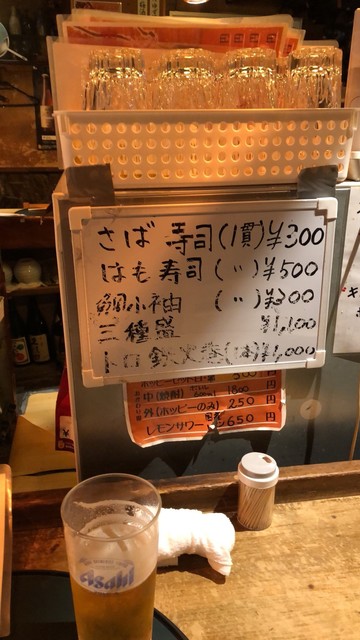 さば寿司(1貫)¥300
はも寿司(〃)¥500
鯛小袖(〃)¥300
三種盛 ¥1,100
トロ鉄火巻(1本)¥1,000
中(焼酎) 300円
外(ホッピーのみ) 250円
レモンサワー 650円
Asahi